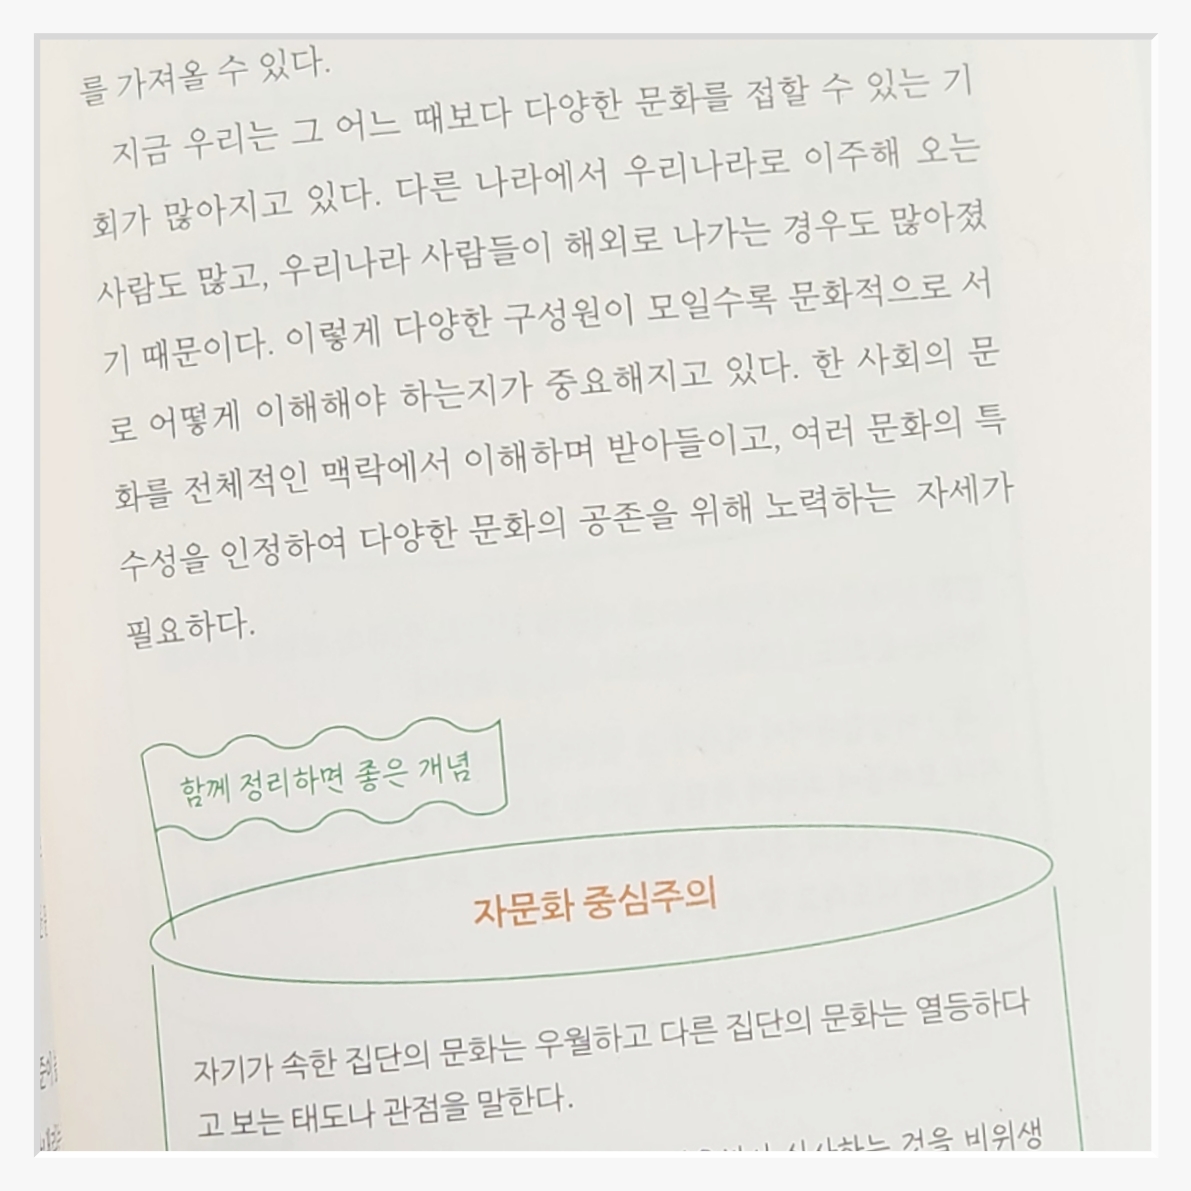 를 가져올 수 있다.
지금 우리는 그 어느 때보다 다양한 문화를 접할 수 있는 기
회가 많아지고 있다. 다른 나라에서 우리나라로 이주해 오는
사람도 많고, 우리나라 사람들이 해외로 나가는 경우도 많아졌
기 때문이다. 이렇게 다양한 구성원이 모일수록 문화적으로 서
로 어떻게 이해해야 하는지가 중요해지고 있다. 한 사회의 문
화를 전체적인 맥락에서 이해하며 받아들이고, 여러 문화의 특
수성을 인정하여 다양한 문화의 공존을 위해 노력하는 자세가
필요하다.
함께 정리하면 좋은 개념
자문화 중심주의
자기가 속한 집단의 문화는 우월하고 다른 집단의 문화는 열등하다
고 보는 태도나 관점을 말한다.
것을 비위생